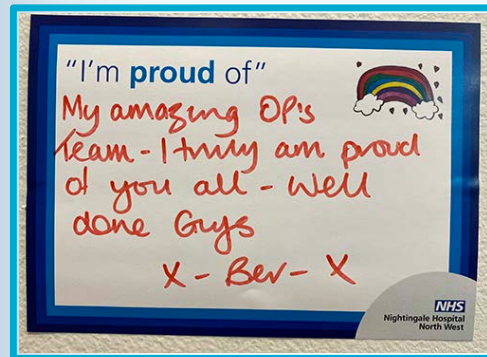 "I'm proud of"
My amazing OP's
Team - I truly am proud
of you all - Well
done Guys
X - Bev - X
NHS
Nightingale Hospital
North West